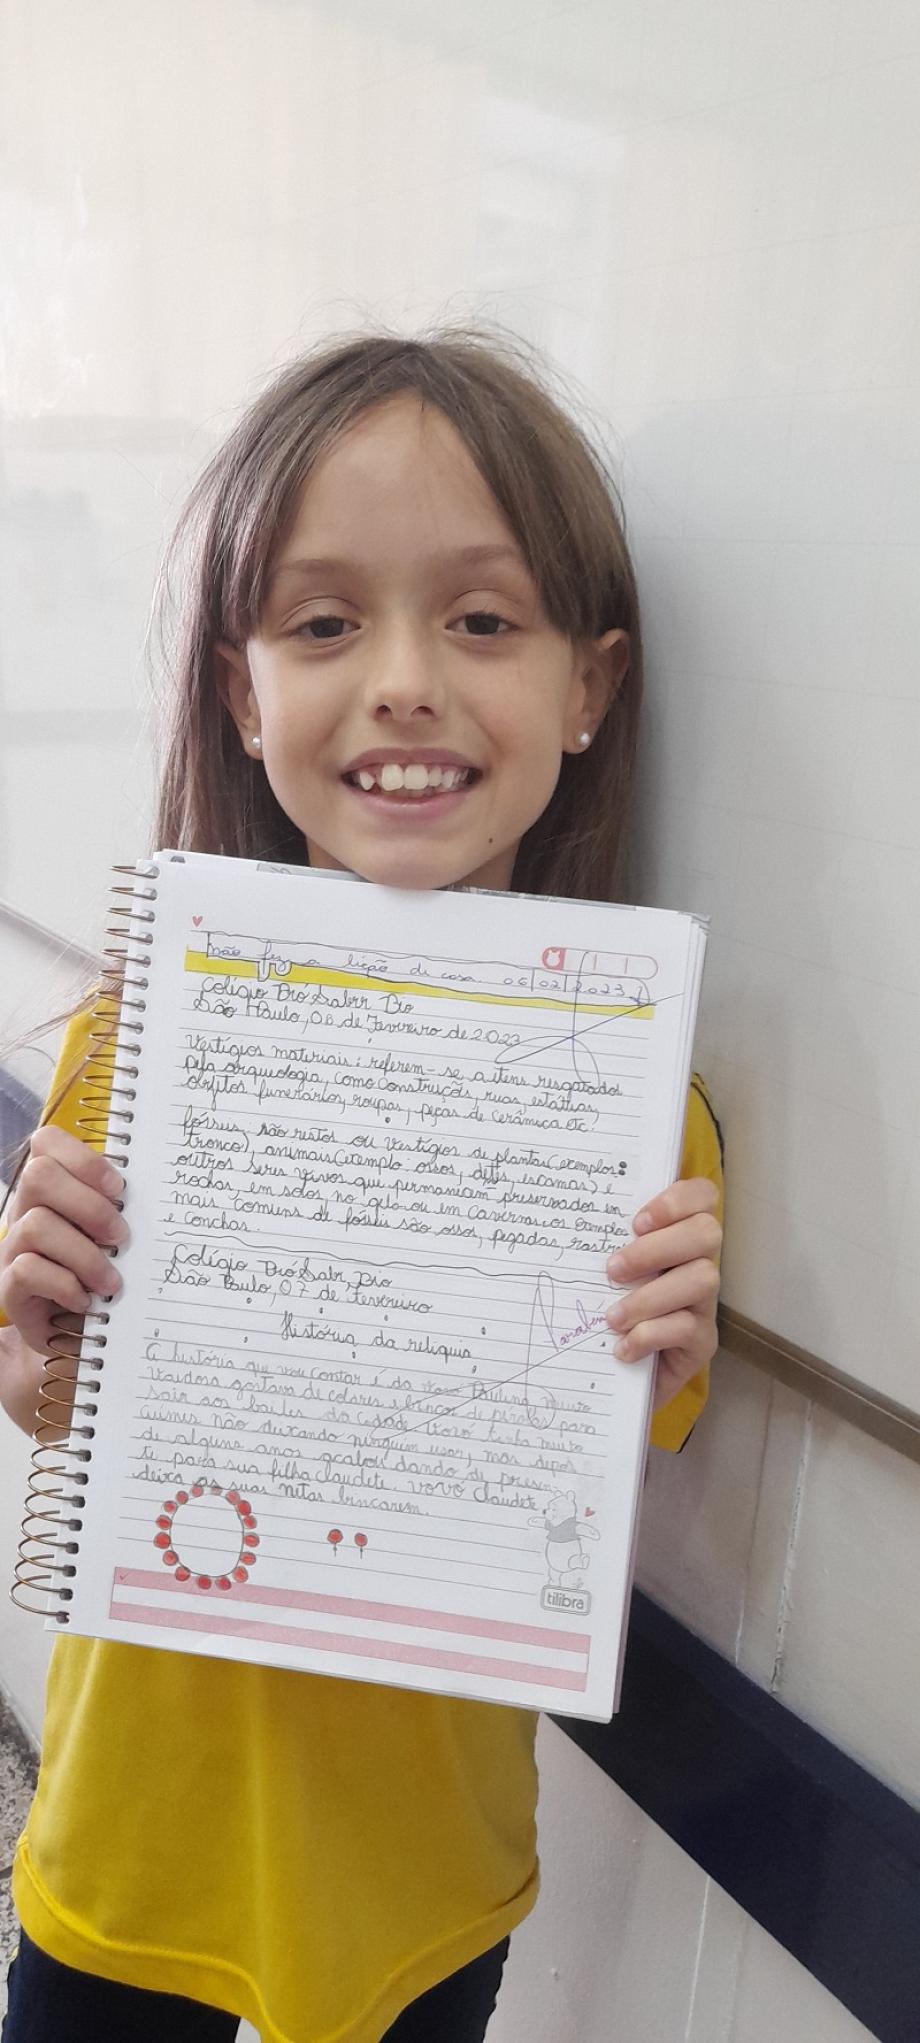 não fez a lição de casa 06/02/2023
Colégio Pró Saber Bio
São Paulo, 08 de Fevereiro de 2023
Vestígios materiais: referem-se a itens resgatados
pela arqueologia, como construções, ruas, estátuas,
objetos funerários, roupas, peças de cerâmica etc.
fósseis: são restos ou vestígios de plantas (exemplos:
tronco), animais (exemplo: ossos, dentes, escamas) e
outros seres vivos que permaneciam preservados em
rochas, em solos, no gelo ou em cavernas. os exemplos
mais comuns de fósseis são ossos, pegadas, rastro
e conchas.
Colégio Pró Sabr, Bio
São Paulo, 07 de fevereiro
Parabén
História da reliquia
A história que vou contar é da vovó Paulina, muito
vaidosa gostava de colares e brincos de pérolas para
sair aos bailes da cidade. Vovó tinha muito
ciúmes não deixando ninguém usar, mas depois
de alguns anos acabou dando de presen-
te para sua filha claudete. vovó claudete,
deixa as suas netas brincarem.
tilibra